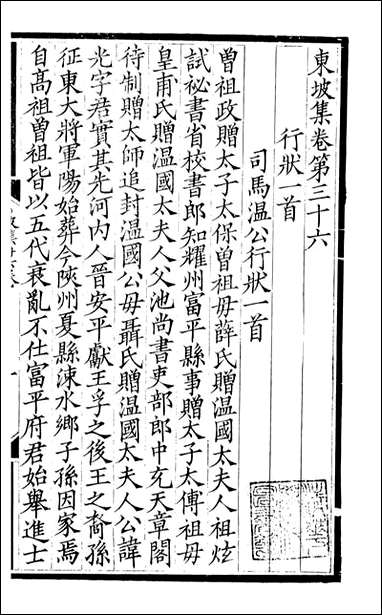 東坡集卷第三十六
行狀一首
司馬溫公行狀一首
曾祖政贈太子太保曾祖母薛氏贈溫國太夫人祖炫
試祕書省校書郎知耀州富平縣事贈太子太傅祖母
皇甫氏贈溫國太夫人父池尚書吏部郎中充天章閣
待制贈太師追封溫國公母聶氏贈溫國太夫人公諱
光字君實其先河內人晉安平獻王孚之後王之裔孫
征東大將軍陽始葬今陝州夏縣涑水鄉子孫因家焉
自高祖曾祖皆以五代衰亂不仕富平府君始舉進士